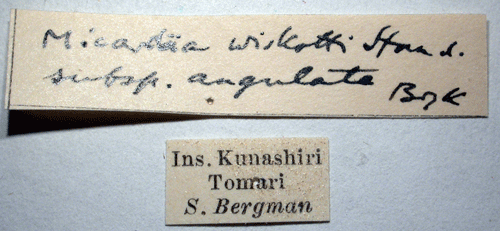 Micardia wiskotti Stand.
subsp. angulata Bryk
Ins. Kunashiri
Tomari
S. Bergman